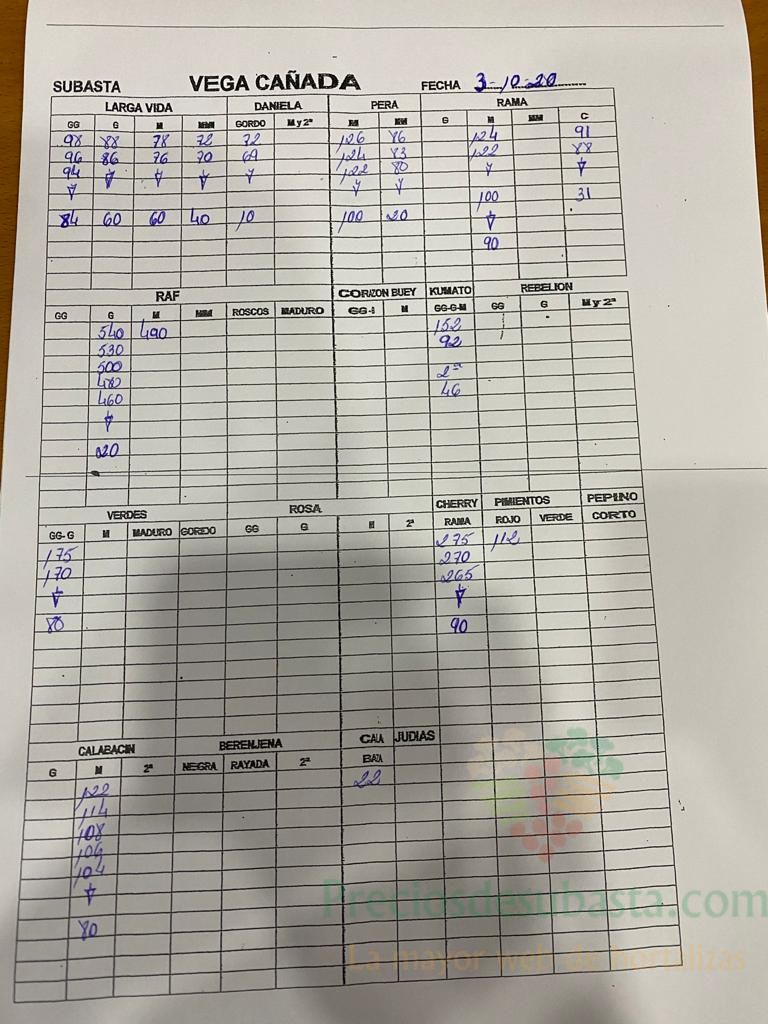 SUBASTA VEGA CAÑADA FECHA 3-10-20
LARGA VIDA DANIELA PERA RAMA
GG G M MM GORDO M y 2ª M MM G M MM C
98 88 78 72 72 126 86 124 91
96 86 76 70 69 124 83 122 88
94 122 80
100 31
84 60 60 40 10 100 20
90
RAF CORAZON BUEY KUMATO REBELION
GG G M MM ROSCOS MADURO GG-G M GG-G-M GG G M y 2ª
540 490 152
530 92
500
480 2ª
460 46
20
VERDES ROSA CHERRY PIMIENTOS PEPINO
GG-G M MADURO GORDO GG G M 2ª RAMA ROJO VERDE CORTO
175 275 112
170 270
265
80 90
CALABACIN BERENJENA CALA JUDIAS
G M 2ª NEGRA RAYADA 2ª BAZA
122 22
114
108
104
80
Preciosdesubasta.com
La mayor web de hortalizas